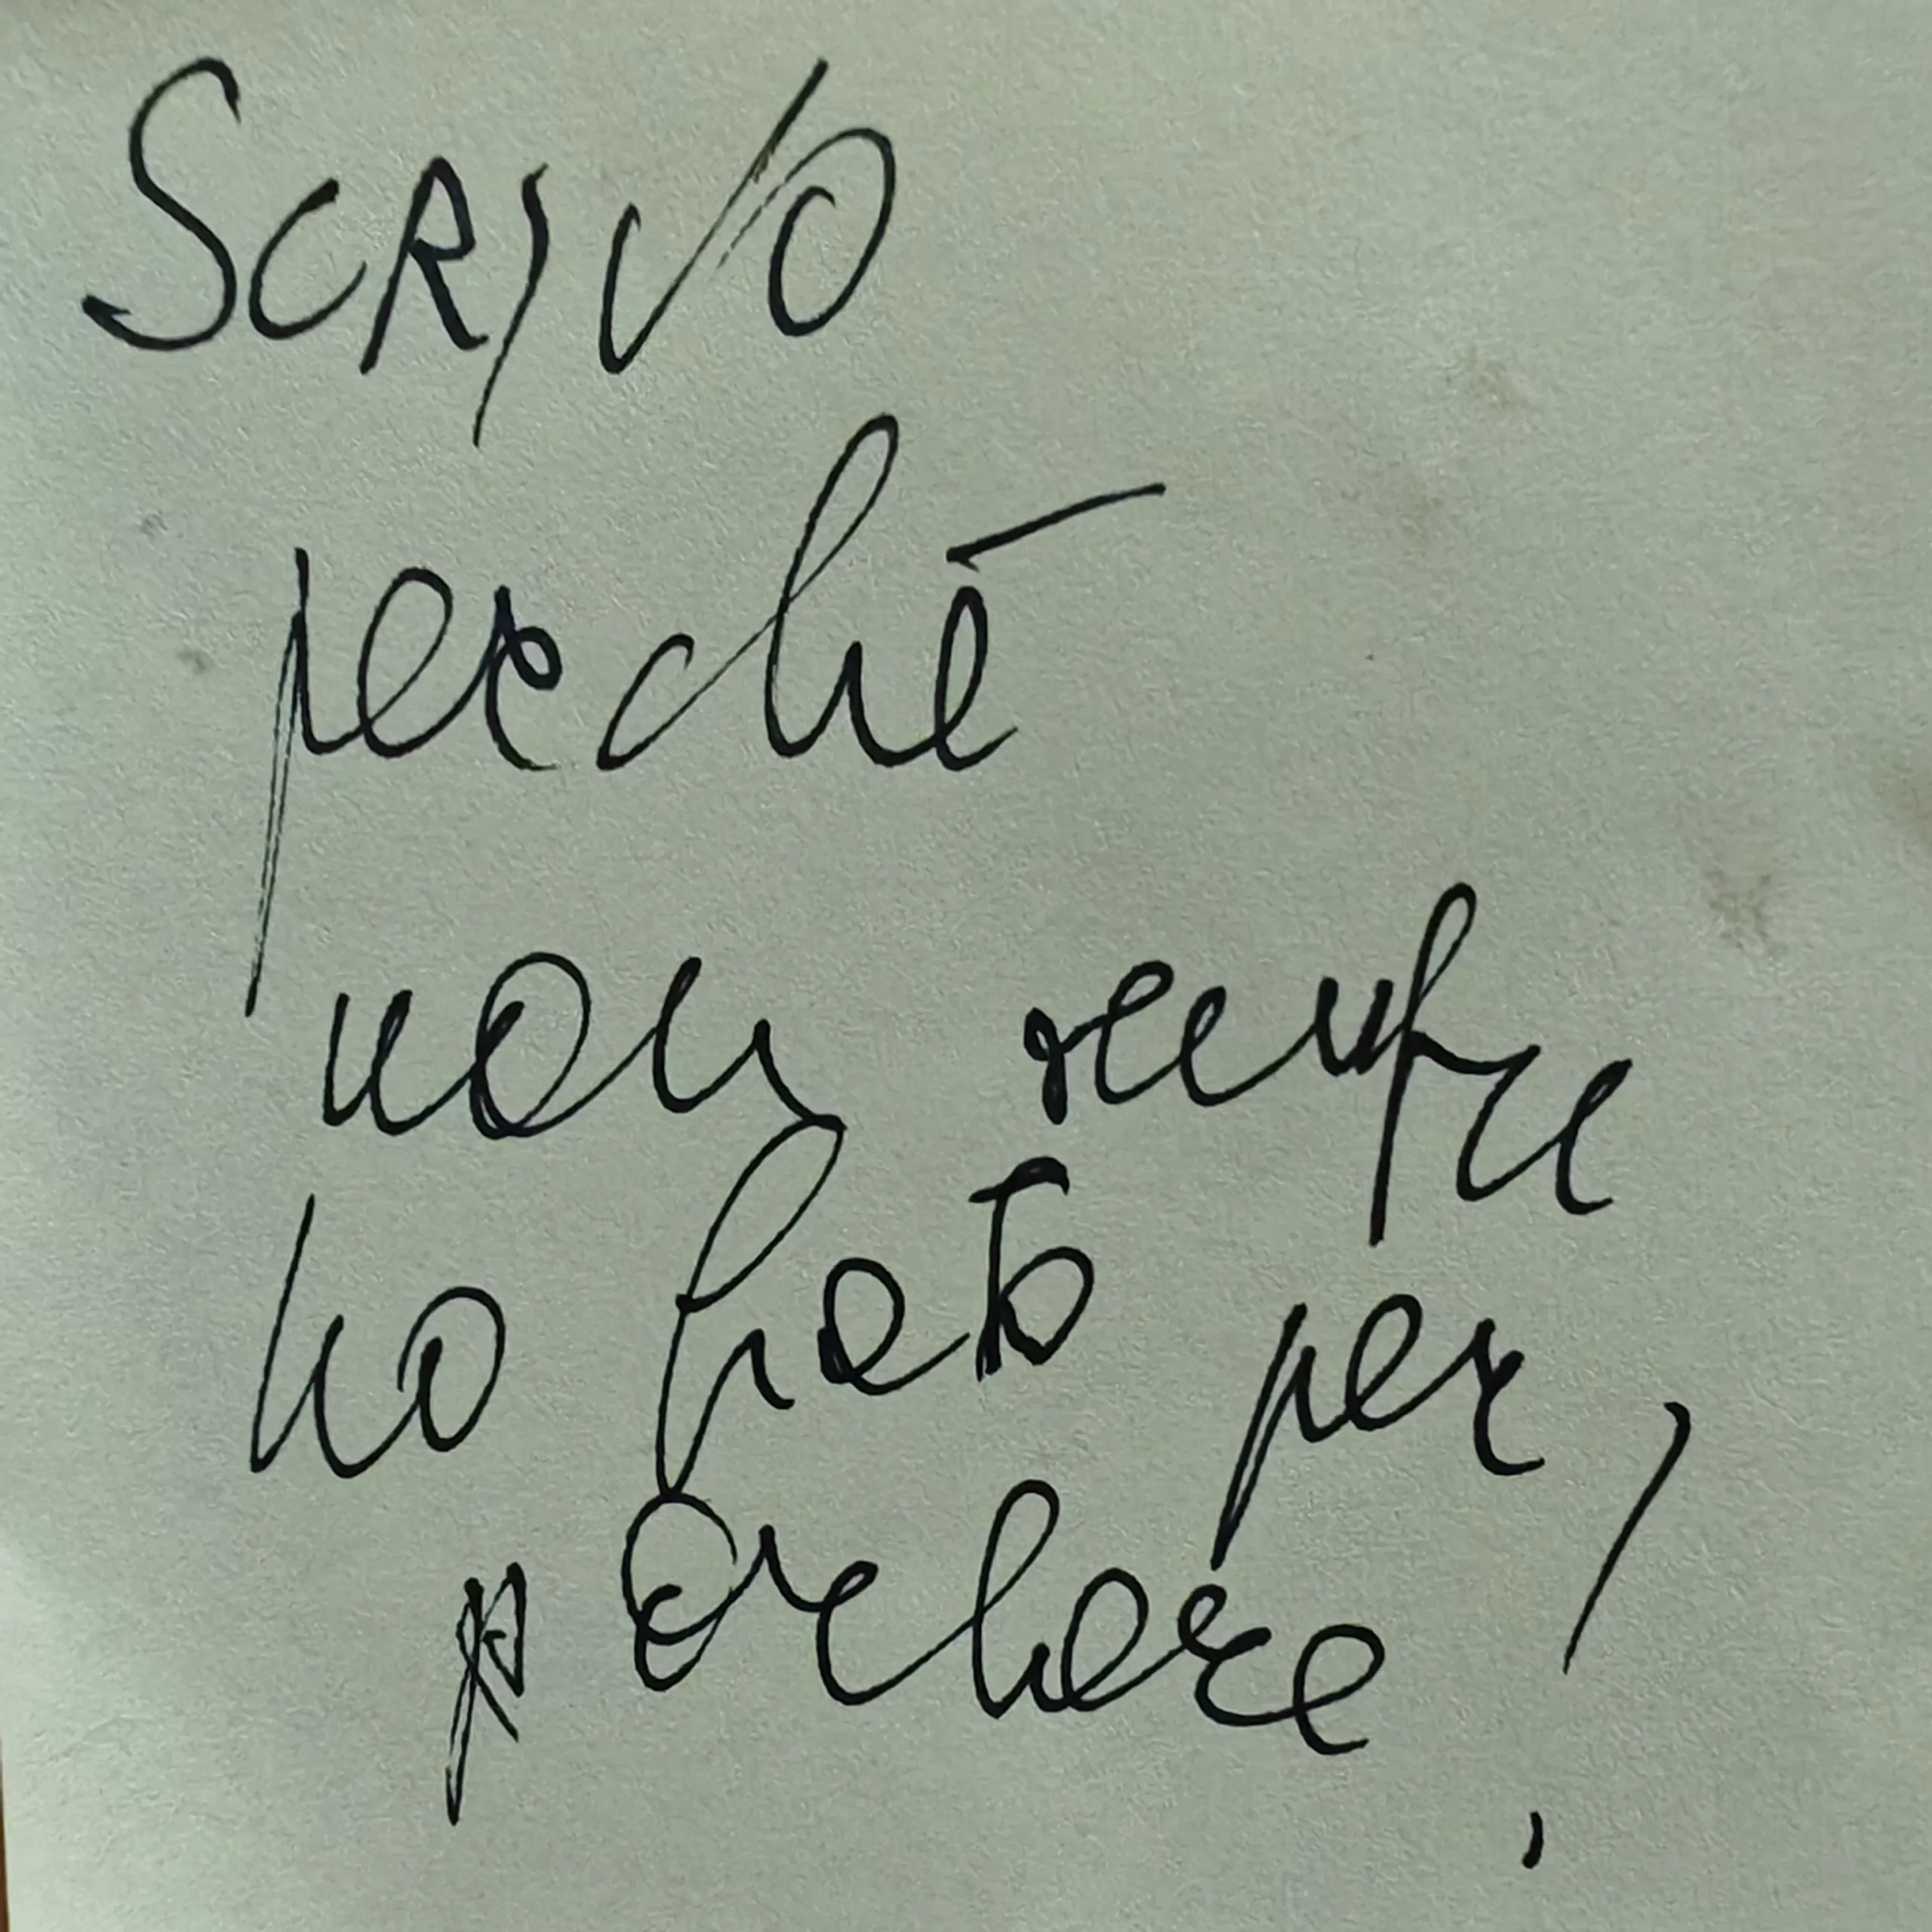 SCRIVO
perché
non sempre
ho fiato per
parlare!